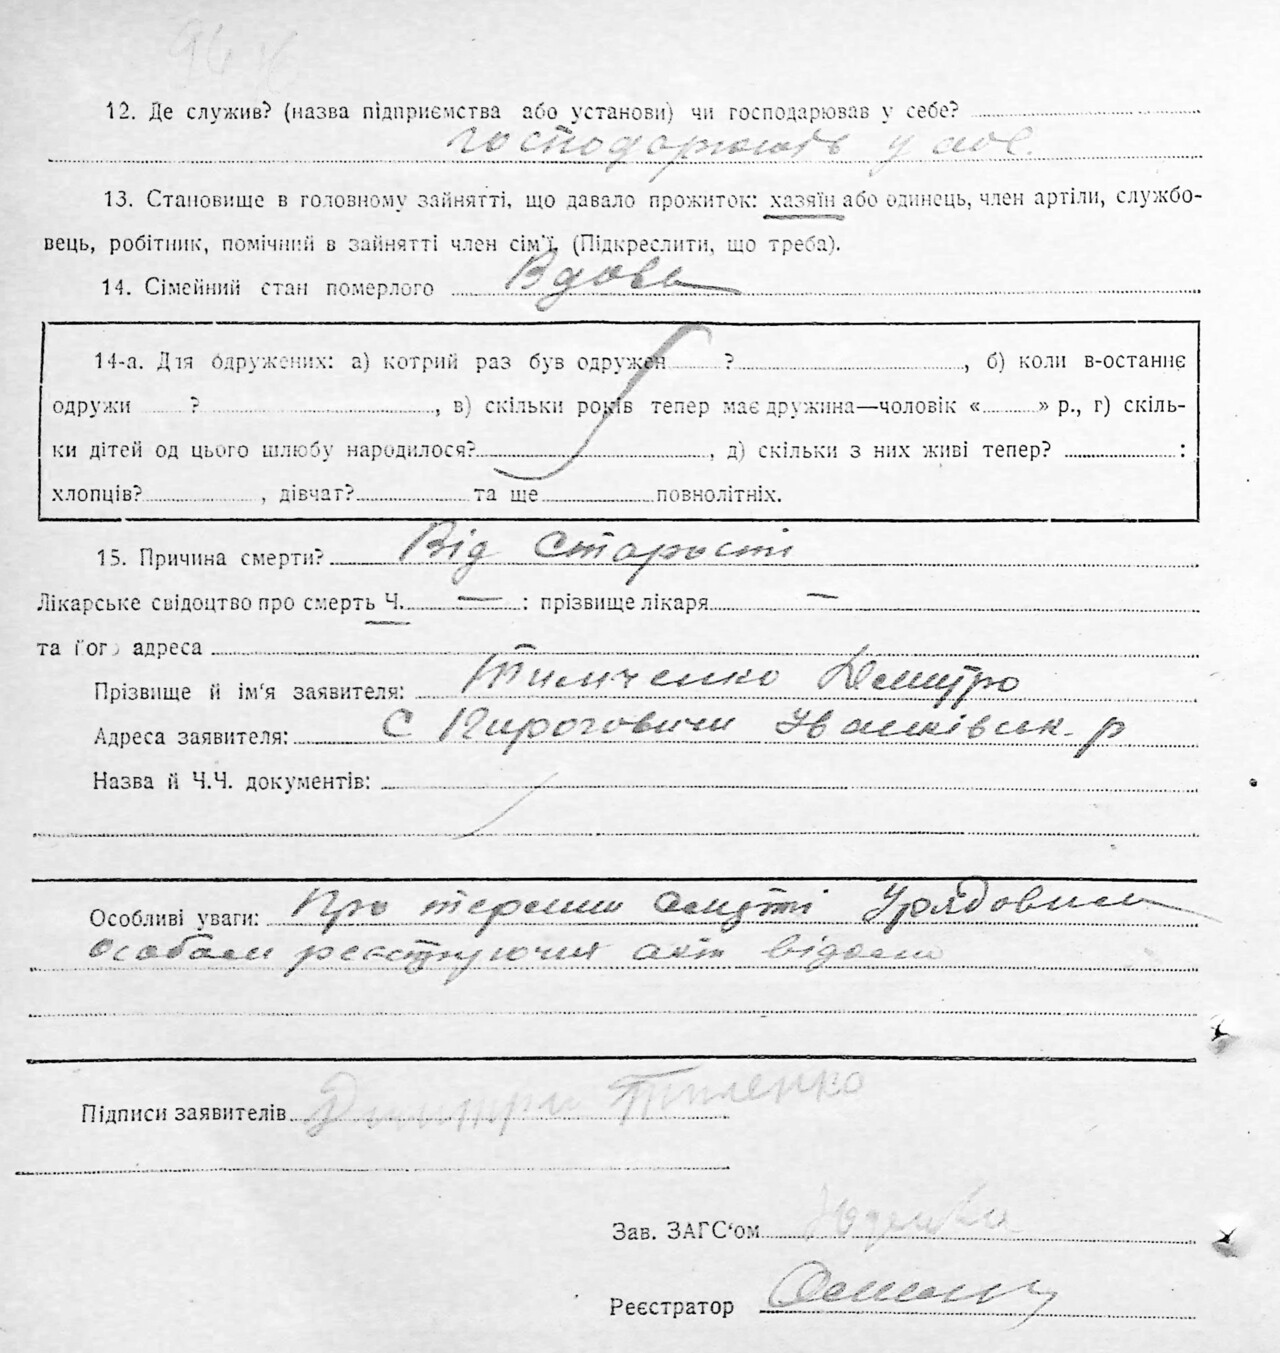 12. Де служив? (назва підприємства або установи) чи господарював у себе?
у себе.
13. Становище в головному зайнятті, що давало прожиток: хазяїн або одинець, член артіли, службо-
вець, робітник, помічний в зайнятті член сім'ї. (Підкреслити, що треба).
14. Сімейний стан померлого Вдова
14-а. Для одружених: а) котрий раз був одружен ? , б) коли в-останнє
одружи ? , в) скільки років тепер має дружина—чоловік « » р., г) скіль-
ки дітей од цього шлюбу народилося? , д) скільки з них живі тепер? :
хлопців? , дівчат? та ще повнолітніх.
15. Причина смерти? Від старости
Лікарське свідоцтво про смерть Ч. — : прізвище лікаря —
та його адреса
Прізвище й ім'я заявителя: Тимченко Дмитро
Адреса заявителя: С Пироговичи Іванківськ. р
Назва й Ч.Ч. документів:
Особливі уваги: Про смерті Урядовим
особам реєструючим акт відомо
Підписи заявителів
Зав. ЗАГС'ом
Реєстратор